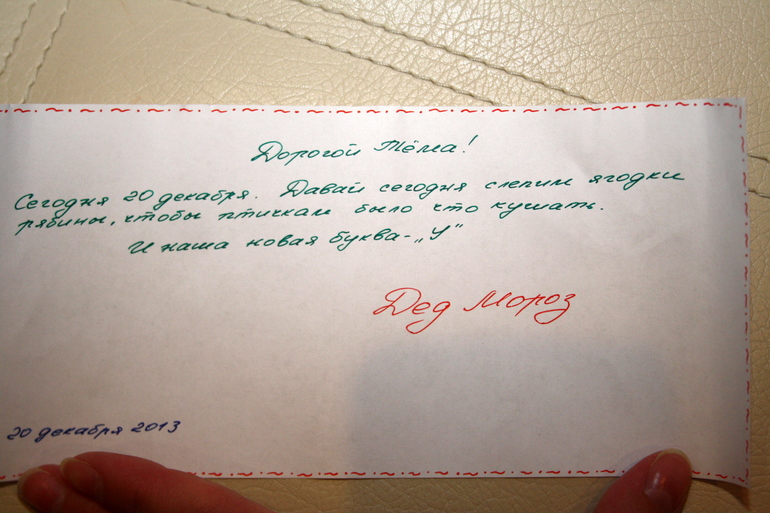 Дорогой Тёма!
Сегодня 20 декабря. Давай сегодня слепим ягодки
рябины, чтобы птичкам было что кушать.
И наша новая буква - „У"
Дед Мороз
20 декабря 2013